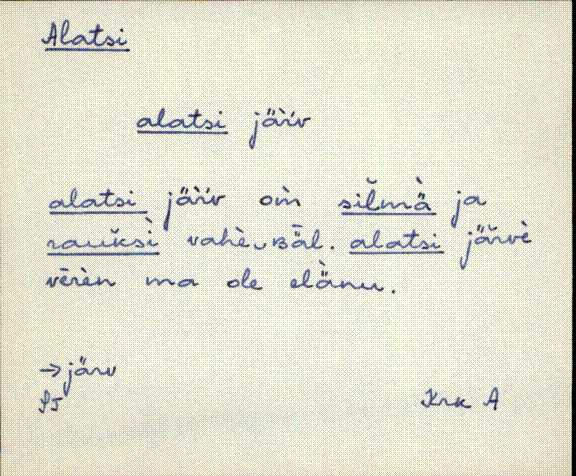 Alatsi
alatsi jäì̈v
alatsi jäì̈v om̀ sìl̆mä̀ ja
rauk̆sì vahè‿ʙāl. alatsi jär̆vè
vērèn ma ole elä̀nu.
→järv
Krk A